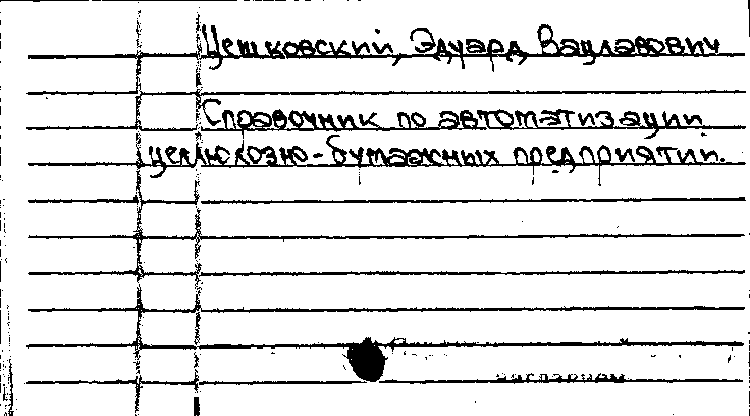 Цешковский, Эдуард Вацлавович
Справочник по автоматизации
целлюлозно-бумажных предприятий.